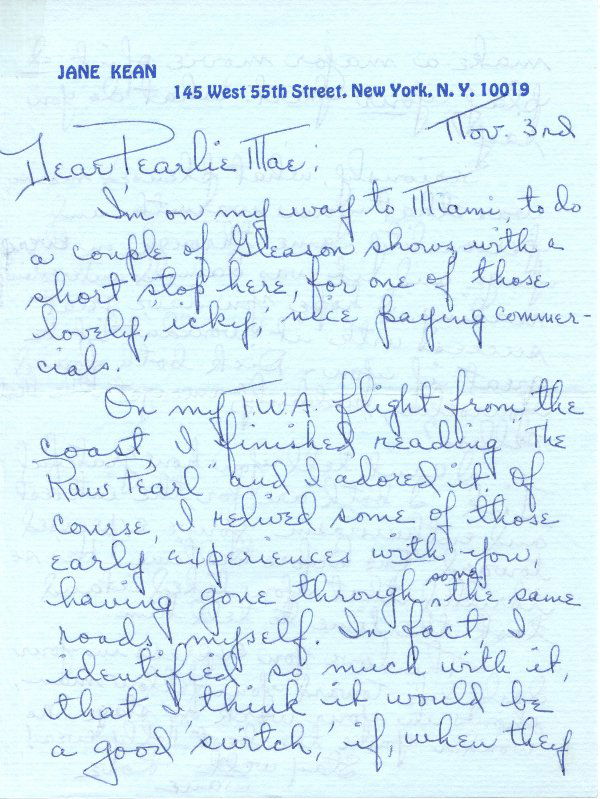 JANE KEAN
145 West 55th Street, New York, N. Y. 10019
Nov. 3rd
Dear Pearlie Mae:
I'm on my way to Miami, to do
a couple of Gleason shows, with a
short stop here, for one of those
lovely, icky, nice paying commer-
cials.
On my T.W.A. flight from the
coast I finished reading "The
Raw Pearl" and I adored it. Of
course, I relived some of those
early experiences with you,
having gone through some the same
roads myself. In fact I
identified so much with it,
that I think it would be
a good 'switch,' if, when they